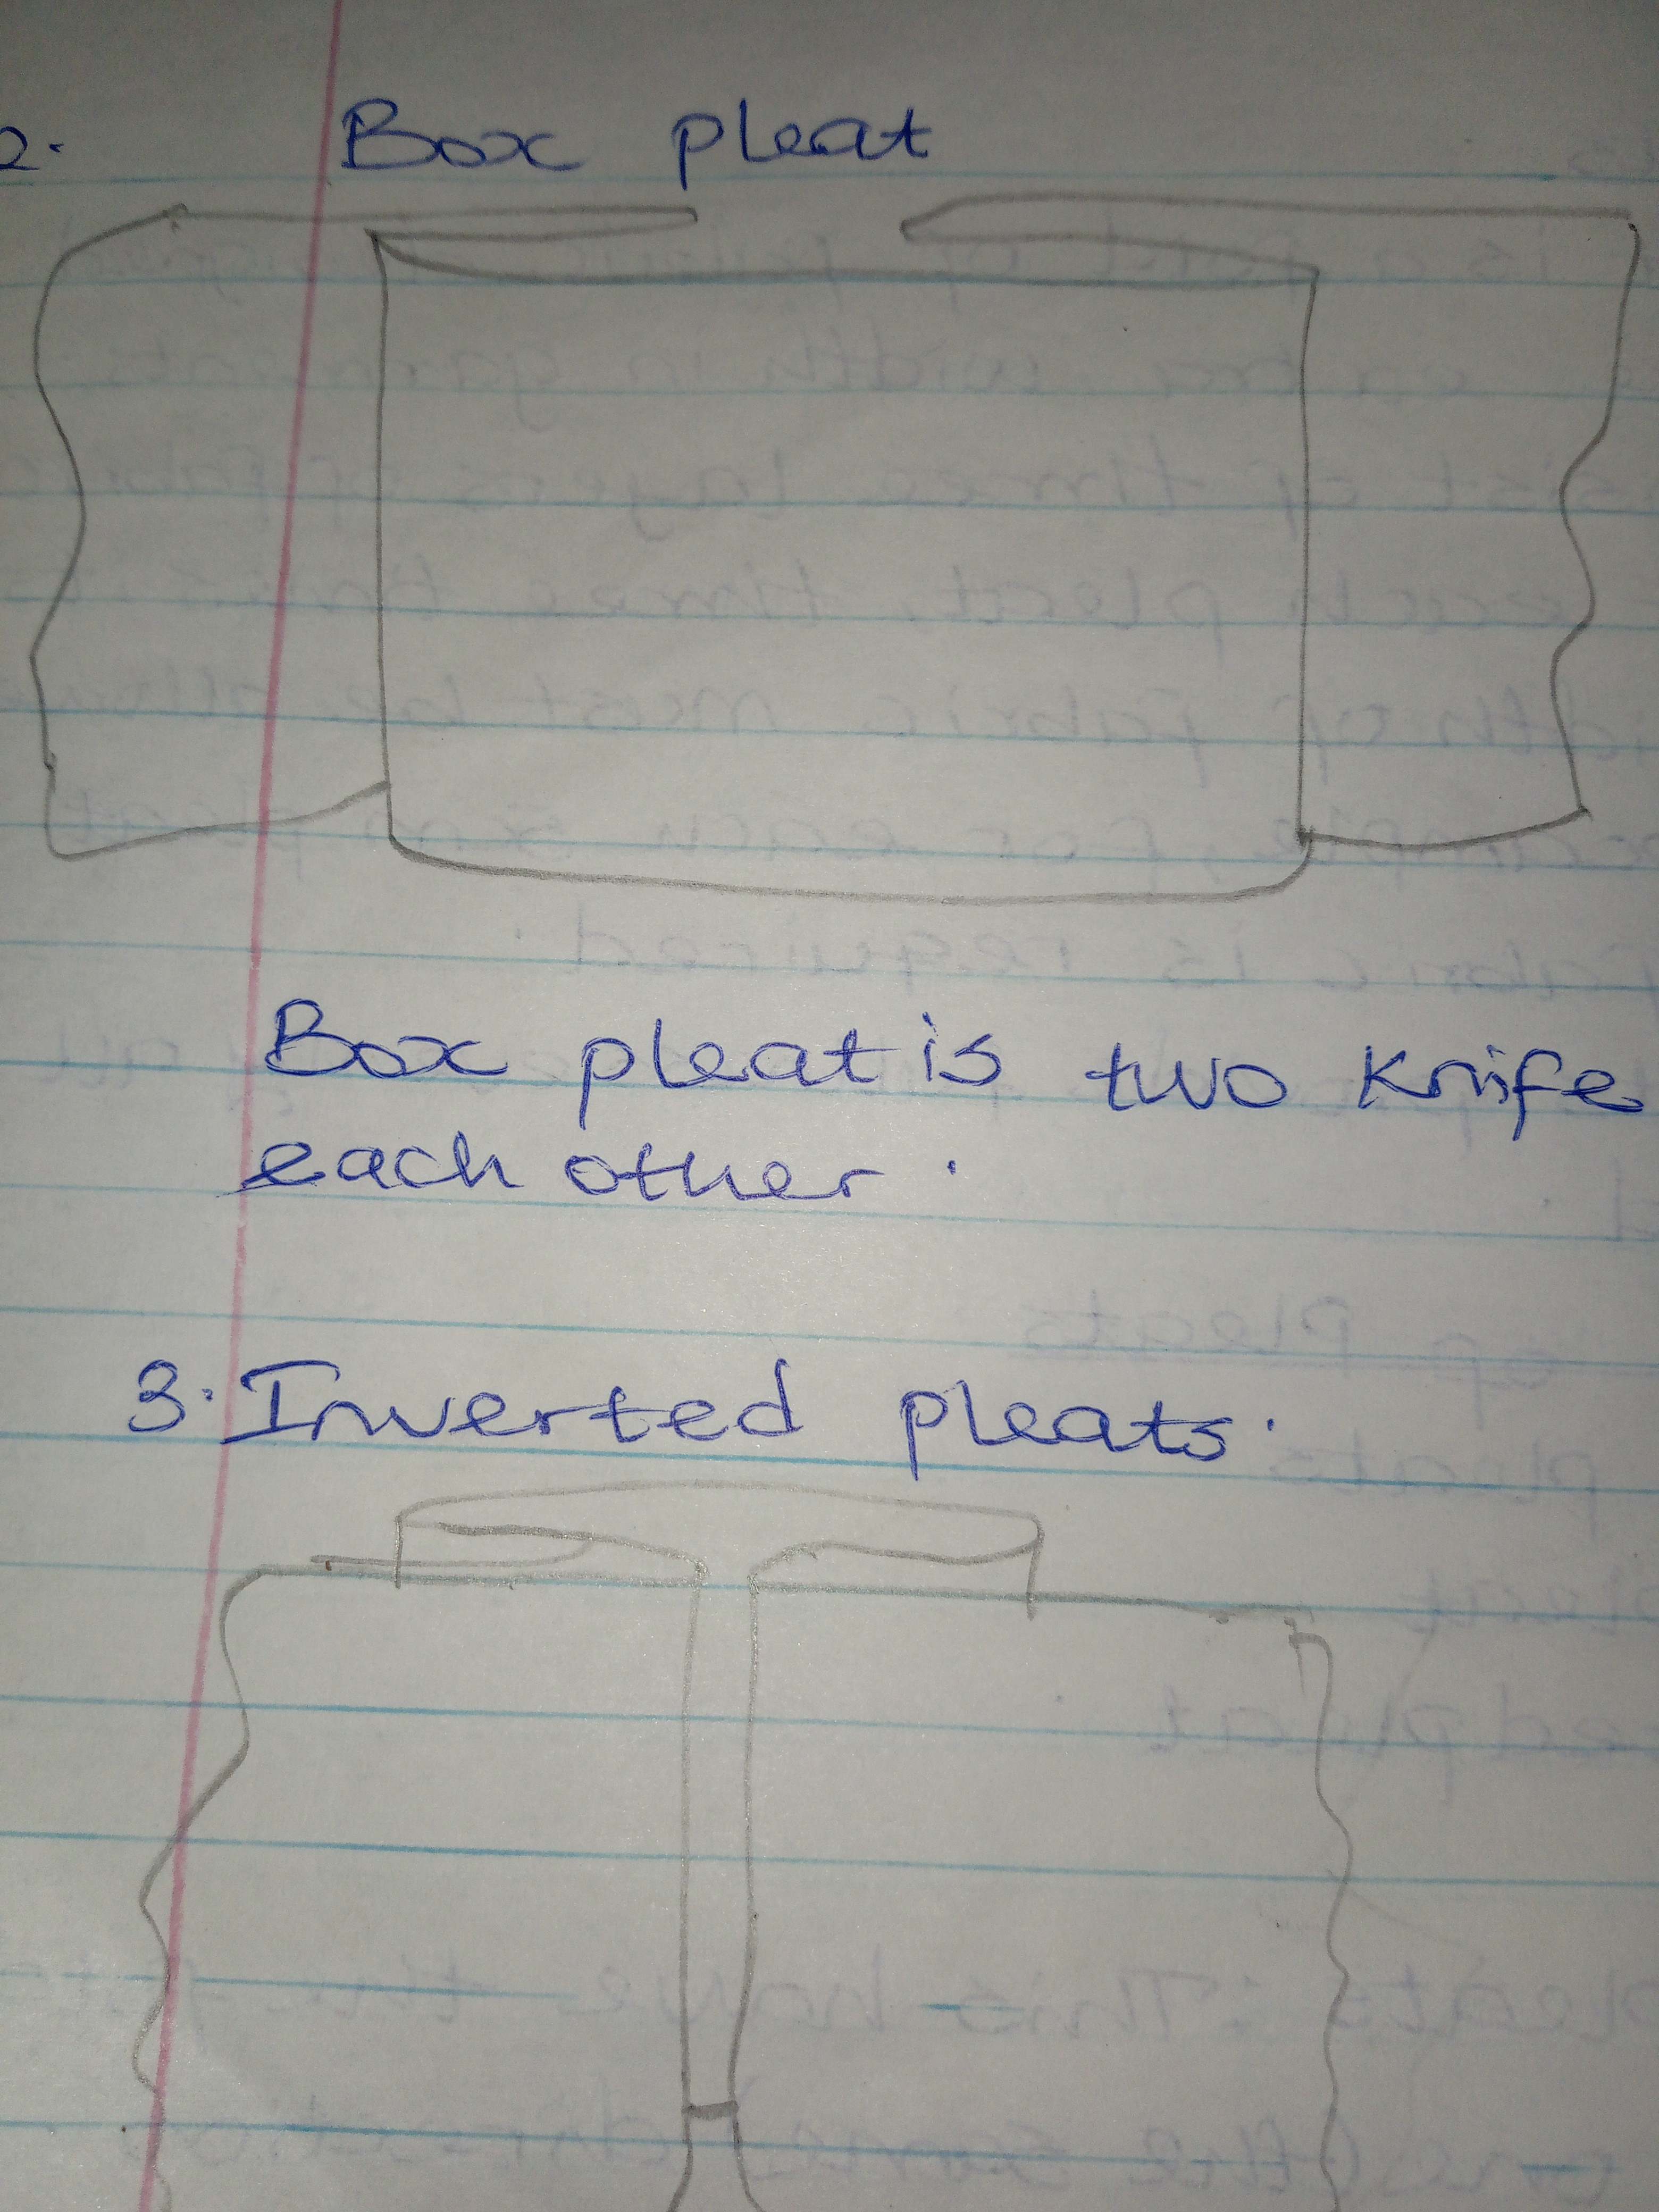 2. Box pleat
Box pleat is two knife
each other.
3. Inverted pleats.